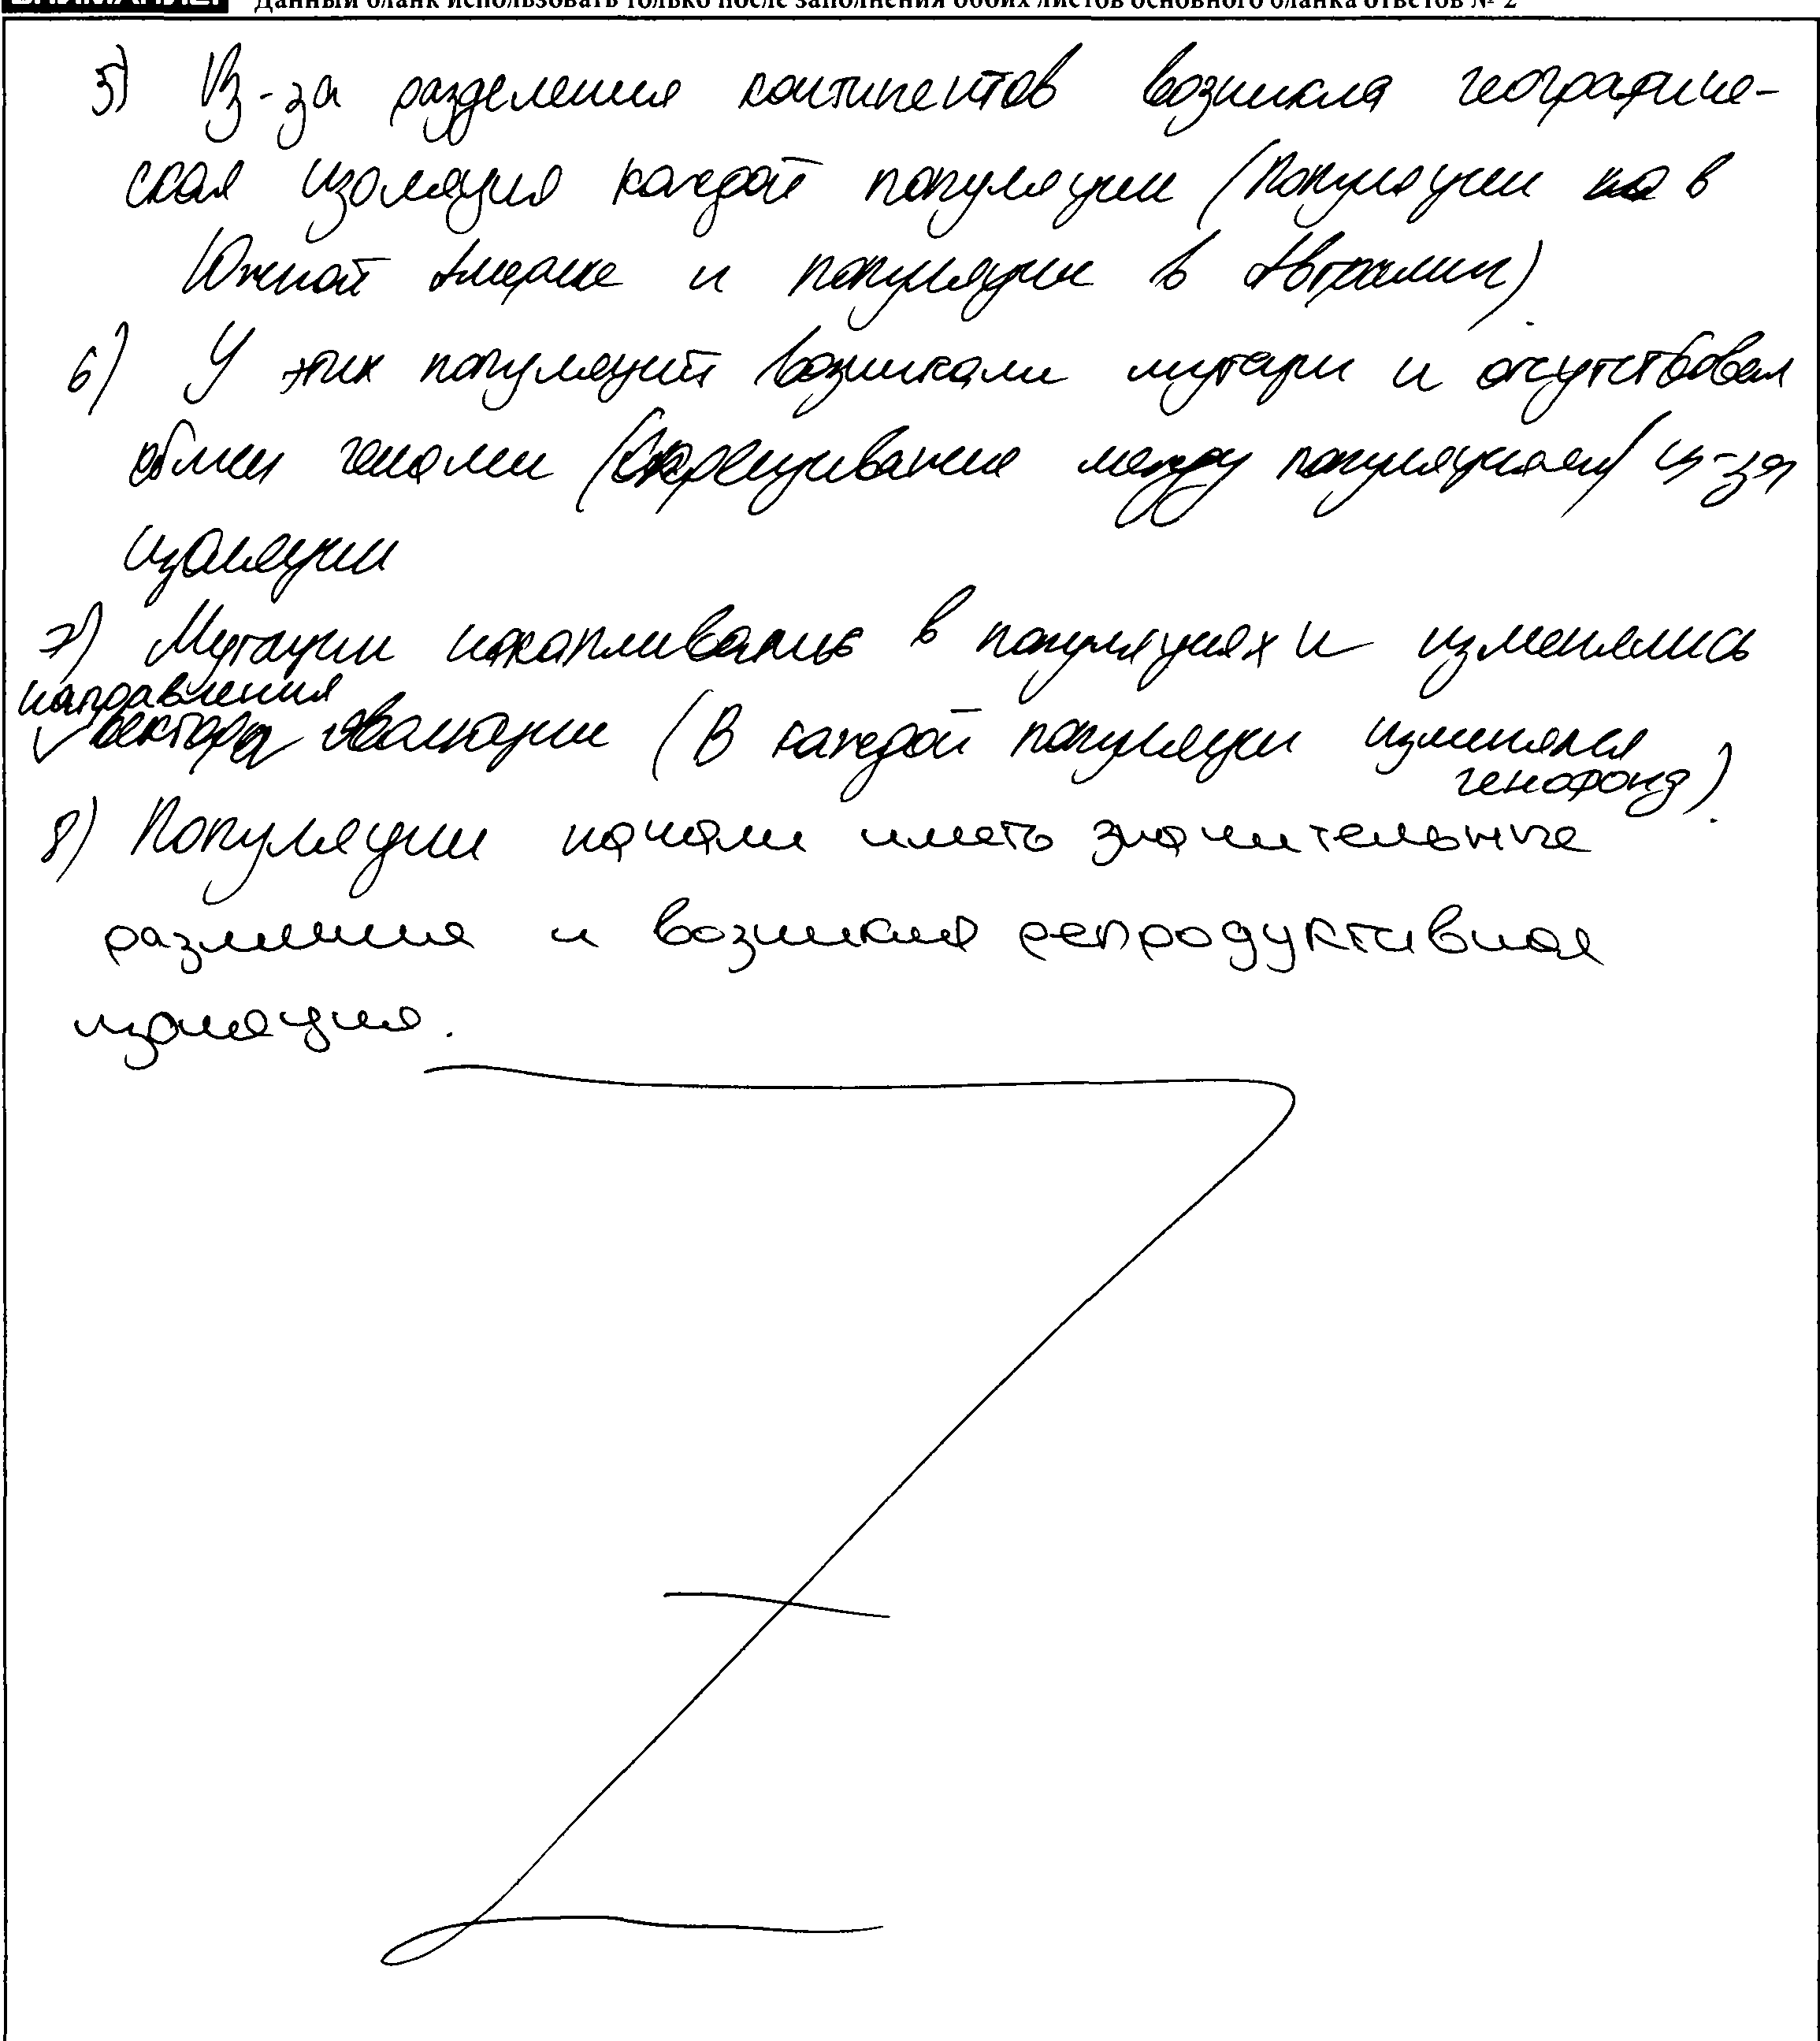 ВНИМАНИЕ! Данный бланк использовать только после заполнения обоих листов основного бланка ответов № 2
5) Из-за разделения континентов возникла географиче-
ская изоляция каждой популяции (Популяции в
Южной Америке и популяции в Австралии).
6) У этих популяций возникали мутации и отсутствовал
обмен генами (скрещивание между популяциями) из-за
изоляции
7) Мутации накапливались в популяциях и изменялись
направления
вектора эволюции (В каждой популяции изменялся
генофонд).
8) Популяции начали иметь значительные
различия и возникла репродуктивная
изоляция.